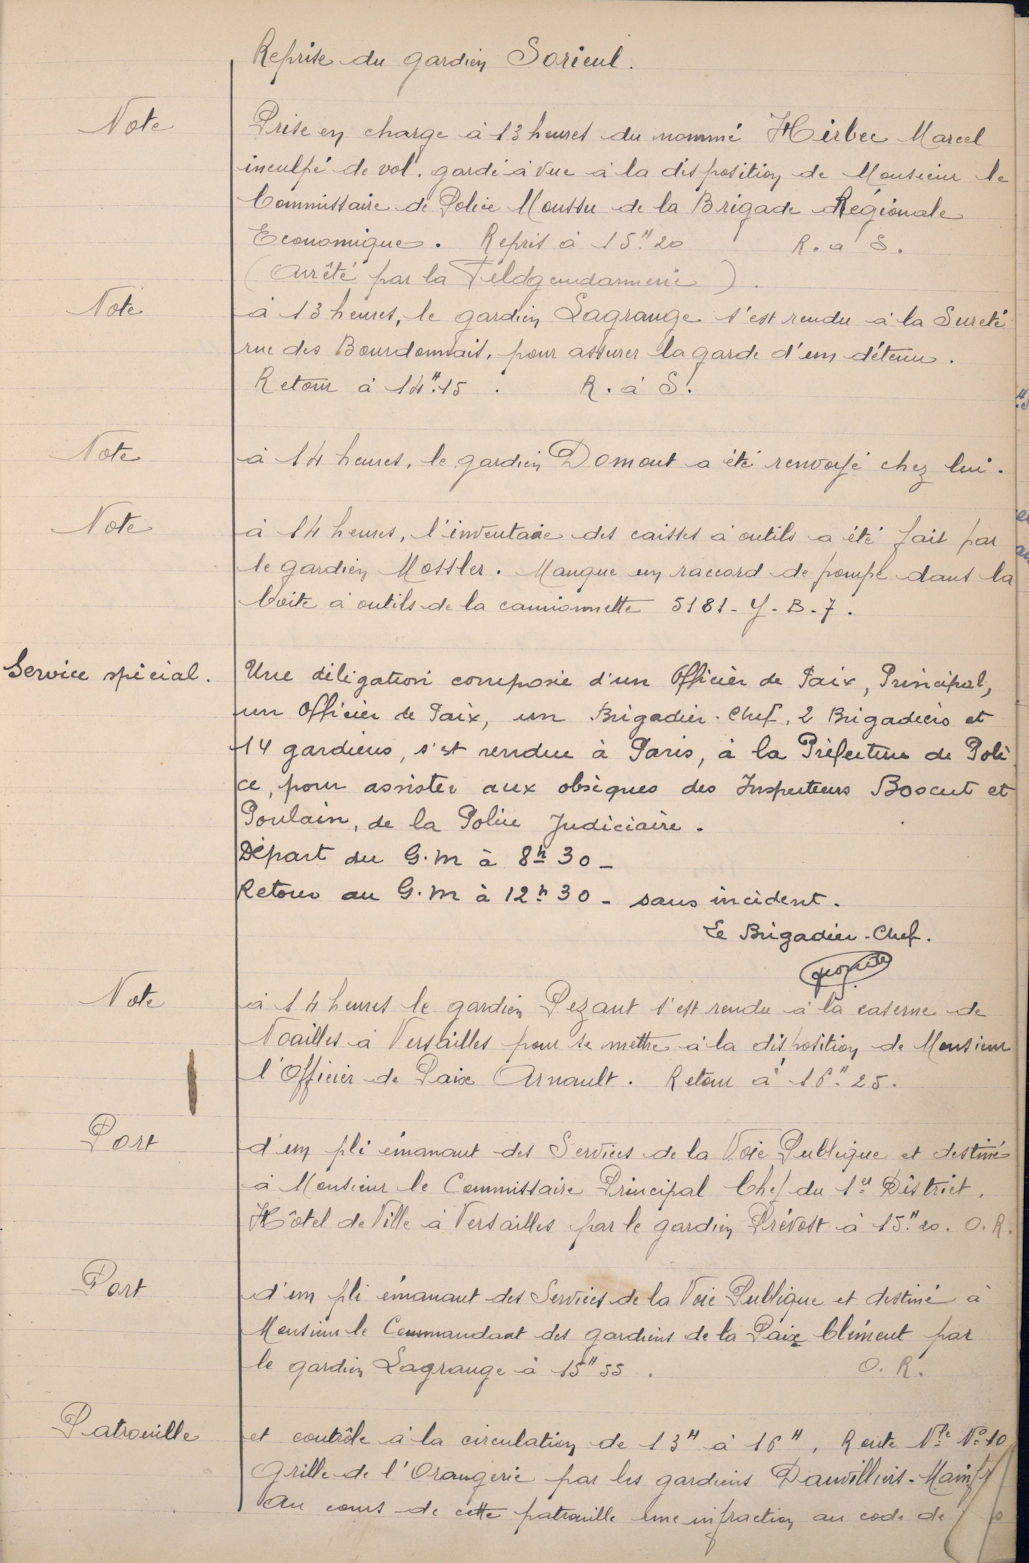 Reprise du gardien Sorieul.
Note
Prise en charge à 13 heures du nommé Hirbec Marcel
inculpé de vol. gardé à vue à la disposition de Monsieur le
Commissaire de Police Moussu de la Brigade Régionale
Economique. Repris à 15H20 R. a S.
(Arrêté par la Feldgendarmerie).
Note
à 13 heures, le gardien Lagrange s'est rendu à la Sureté
rue des Bourdonnais, pour assurer la garde d'un détenu.
Retour à 14H.15. R. à S.
Note
à 14 heures, le gardien Domont a été renvoyé chez lui.
Note
à 14 heures, l'inventaire des caisses à outils a été fait par
le gardien Mossler. Manque un raccord de pompe dans la
boite à outils de la camionnette 5181-Y-B-7.
Service spécial.
Une délégation composée d'un Officier de Paix, Principal,
un Officier de Paix, un Brigadier-Chef, 2 Brigadiers et
14 gardiens, s'est rendue à Paris, à la Préfecture de Poli
ce, pour assister aux obsèques des Inspecteurs Boscut et
Poulain, de la Police Judiciaire.
Départ du G.M à 8h30 -
Retour au G.M à 12h30 - sans incident.
Le Brigadier-Chef.
Note
à 14 heures le gardien Pezant s'est rendu à la caserne de
Noailles à Versailles pour se mettre à la disposition de Monsieur
l'Officier de Paix Arnault. Retour à 16H.25.
Port
d'un pli émanant des Services de la Voie Publique et destiné
à Monsieur le Commissaire Principal Chef du 1er District.
Hôtel de Ville à Versailles par le gardien Prévost à 15H.20. O.R.
Port
d'un pli émanant des Services de la Voie Publique et destiné à
Monsieur le Commandant des gardiens de la Paix Clément par
le gardien Lagrange à 15H55. O. R.
Patrouille
et contrôle à la circulation de 13H à 16H. Route Nle No 10
Grille de l'Orangerie par les gardiens Danvilliers-
Au cours de cette patrouille une infraction au code de